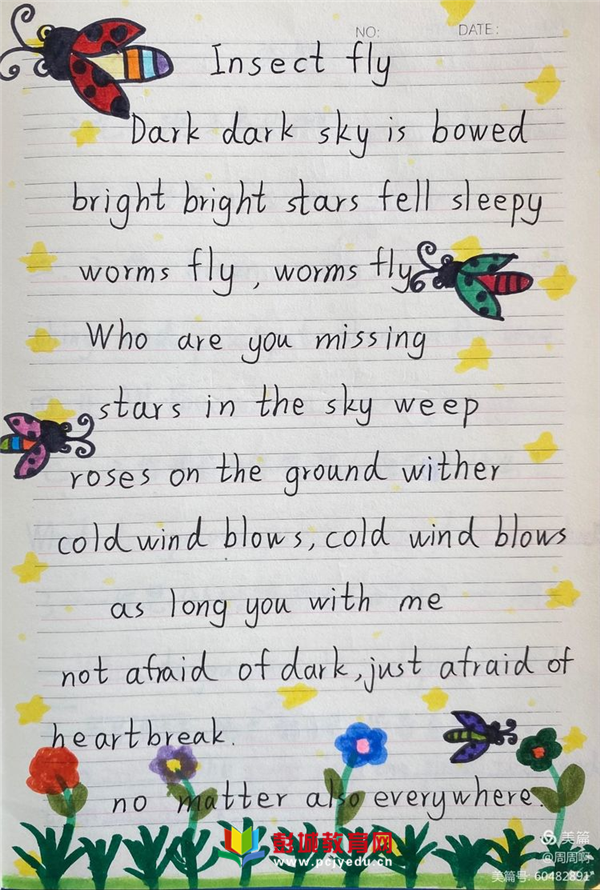 NO:
DATE:
Insect fly
Dark dark sky is bowed
bright bright stars fell sleepy
worms fly , worms fly
Who are you missing
stars in the sky weep
roses on the ground wither
cold wind blows, cold wind blows
as long you with me
not afraid of dark, just afraid of
heartbreak.
no matter also everywhere.
彭城教育网
www.pcjyedu.cn
美篇
@周周啊
美篇号: 60482891